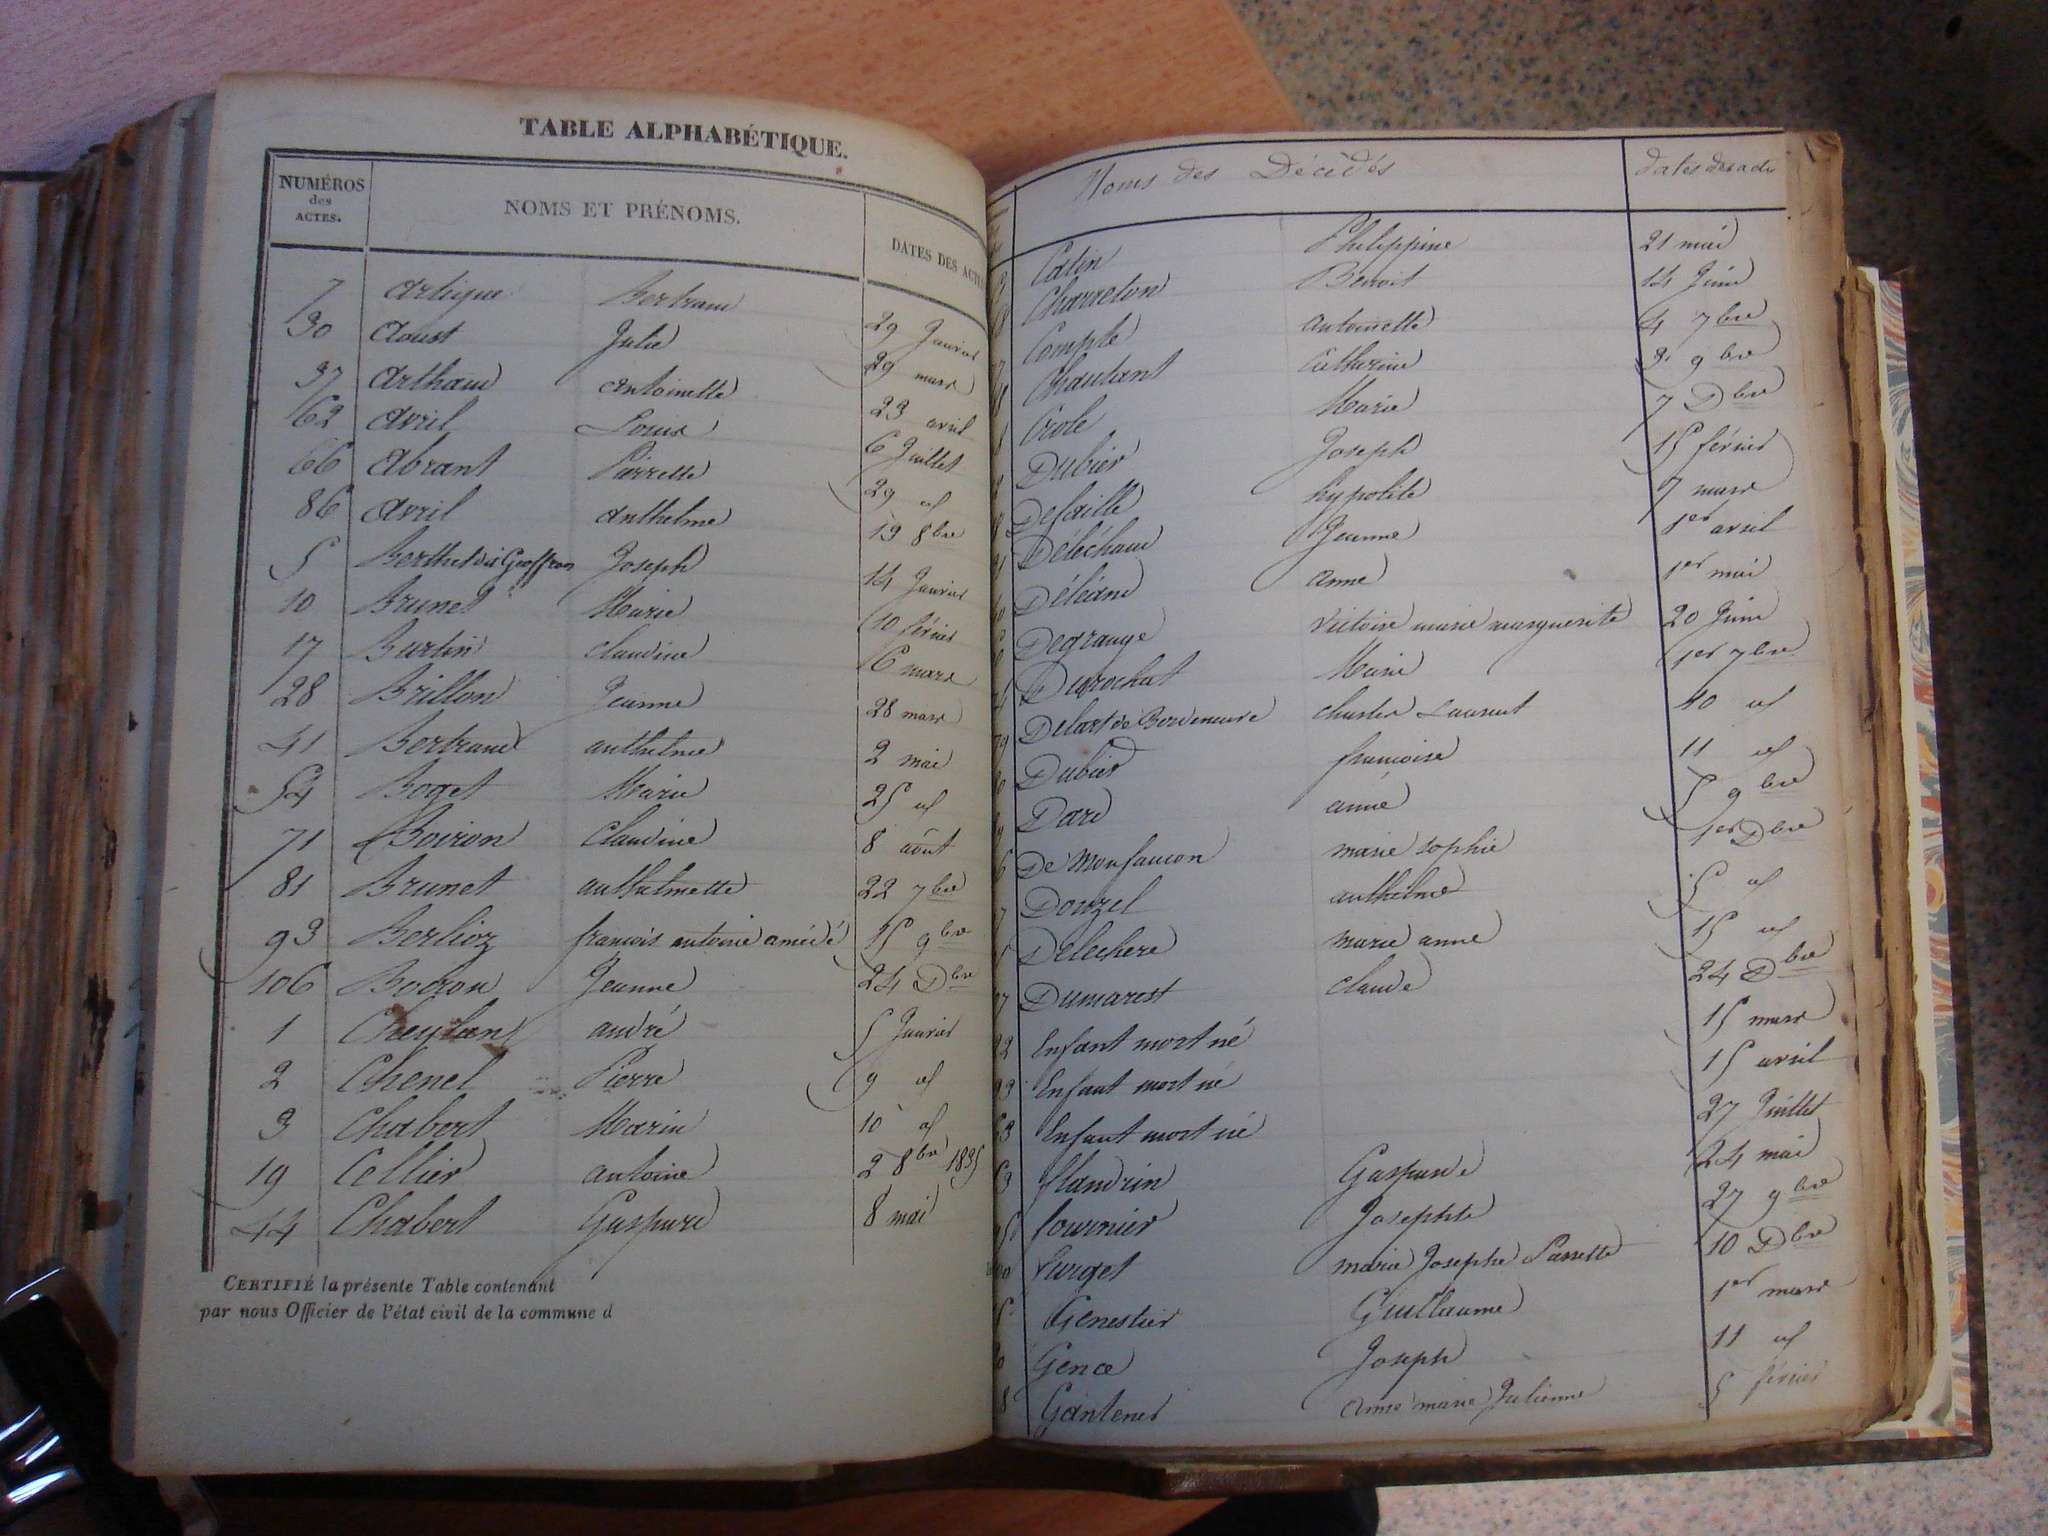 TABLE ALPHABÉTIQUE.
NUMÉROS des ACTES. NOMS ET PRÉNOMS. DATES DES ACTES
7 Artigue Bertrand 29 Janvier
30 Aoust Julie 29 mars
37 Arthaud Antoinette 23 avril
62 Avril Louis 6 Juillet
66 Abrant Pierrette 29 id
86 Avril Anthelme 19 8bre
5 Berthet dit Geoffron Joseph 14 Janvier
10 Brunet Marie 10 février
17 Burtin Claudine 6 mars
28 Brillon Jeanne 28 mars
41 Bertrand anthelme 2 mai
54 Boget Marie 25 id
71 Boiron Claudine 8 août
81 Brunet anthelmette 22 7bre
93 Berlioz francois antoine amédé 15 9bre
106 Boiron Jeanne 24 Dbre
1 Cheylan andré 5 Janvier
2 Chenel Pierre 9 id
3 Chabert Marin 10 id
19 Cellier antoine 2 8bre 1835
44 Chabert Gaspard 8 mai
CERTIFIÉ la présente Table contenant
par nous Officier de l'état civil de la commune d
Noms des Décédés dates des actes
Catin Philippine 21 mai
Charreton Benoit 14 Juin
Compte antoinette 4 7bre
Chautant Catherine 3 9bre
Crole Marie 7 Dbre
Dubier Joseph 15 février
Defaille hypolite 7 mars
Déléchaud Jeanne 1er avril
Déléand anne 1er mai
Degrange victoire marie marguerite 20 Juin
Durochat Marie 1er 7bre
Delart de Bordeneuve charles Laurent 10 id
Dubier francoise 11 id
Dard anne 5 9bre
De Monfaucon marie sophie 1er Dbre
Douzel anthelme 5 id
Delechere marie anne 15 id
Dumarest claude 24 Dbre
22 Enfant mort né 15 mars
33 Enfant mort né 15 avril
63 Enfant mort né 27 Juillet
flandrin Gaspard 24 mai
fournier Josephte 27 9bre
furget marie Josephe 10 Dbre
Genestier Guillaume 1er mars
Gence Joseph 11 id
8 Gantener anne marie Julienne 5 février